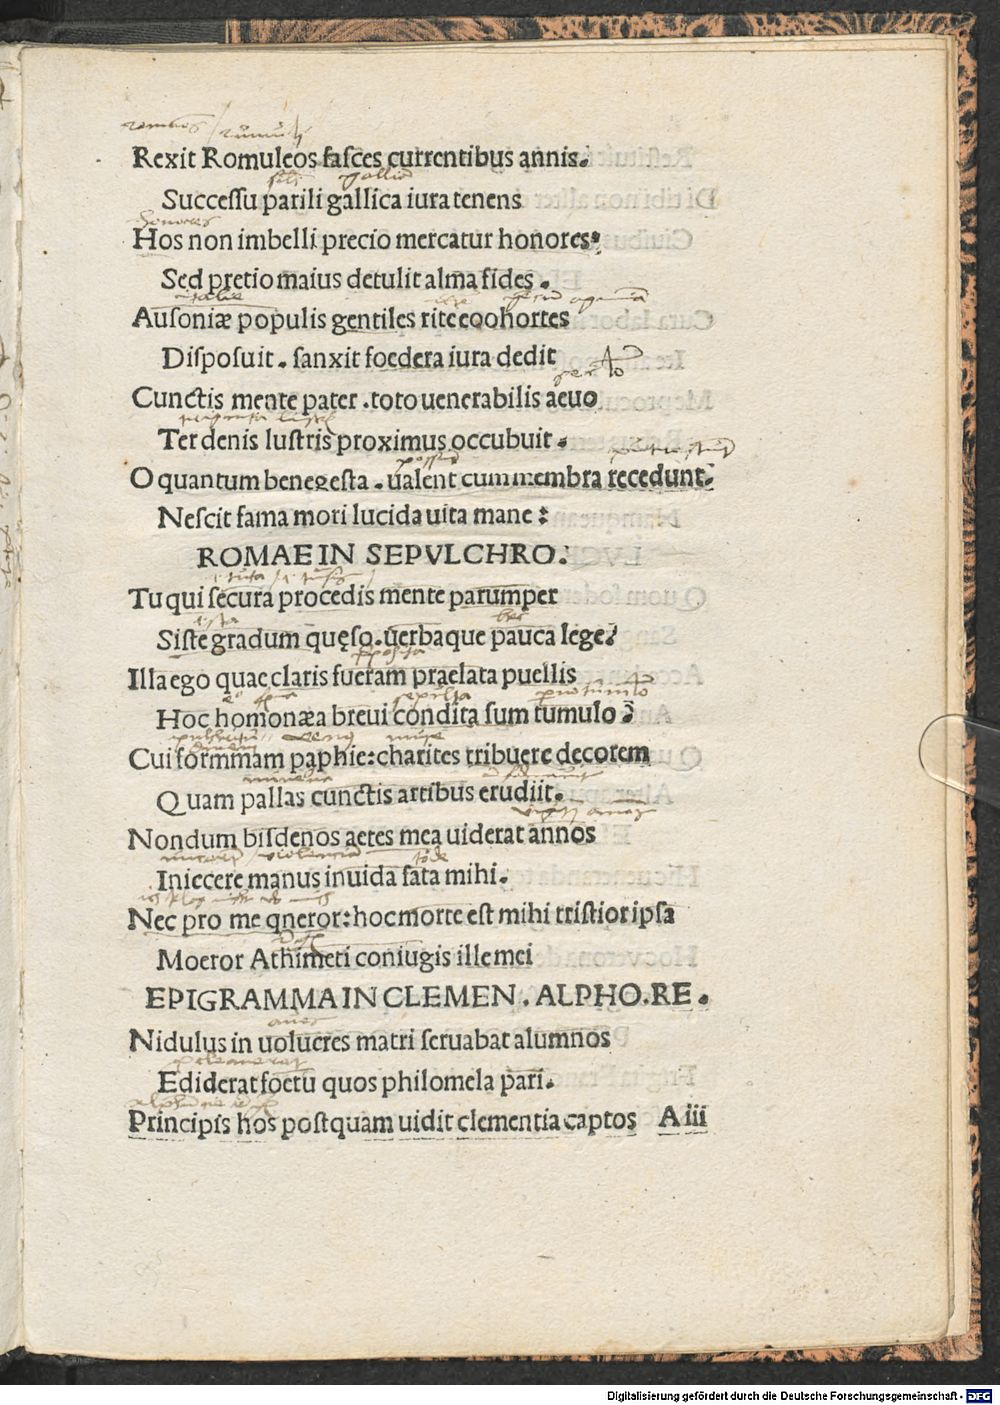 Rexit Romuleos fasces currentibus annis.
Successu parili gallica iura tenens
honores
Hos non imbelli precio mercatur honores:
Sed pretio maius detulit alma fides.
italie
Ausoniæ populis gentiles rite coohortes
Disposuit. sanxit foedera iura dedit
Cunctis mente pater. toto uenerabilis aeuo
Ter denis lustris proximus occubuit.
O quantum benegesta. ualent cum membra recedunt.
Nescit fama mori lucida uita mane:
ROMAE IN SEPVLCHRO.
Tu qui secura procedis mente parumper
Siste gradum quęso. uerbaque pauca lege?
Illa ego quae claris fueram praelata puellis
Hoc homonæa breui condita sum tumulo?
Cui formmam paphie: charites tribuere decorem
minerua
Quam pallas cunctis artibus erudiit.
Nondum bisdenos aetes mea uiderat annos
Iniecere manus inuida fata mihi.
Nec pro me qneror: hoc morte est mihi tristior ipsa
Moeror Athimeti coniugis ille mei
EPIGRAMMA IN CLEMEN. ALPHO. RE.
aues
Nidulus in uolucres matri seruabat alumnos
Ediderat foetu quos philomela pari.
Principis hos postquam uidit clementia captos A iii
Digitalisierung gefördert durch die Deutsche Forschungsgemeinschaft - DFG